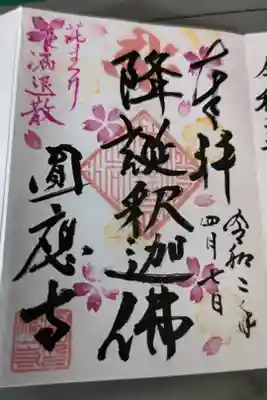 奉拝
令和二年
四月七日
降誕釈迦佛
花まつり
退散
圓應寺